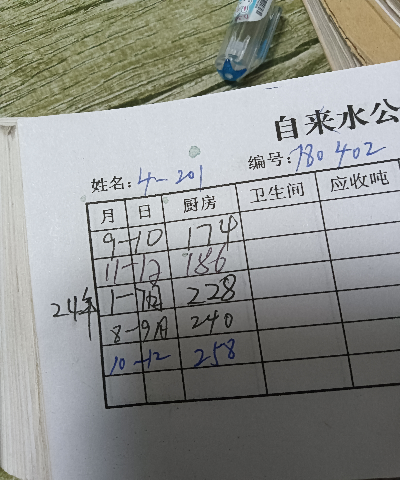 自来水公
姓名: 4-201 编号: 780402
月 日 厨房 卫生间 应收吨
9-10 174
11-12 186
24年 1-7月 228
8-9月 240
10-12 258